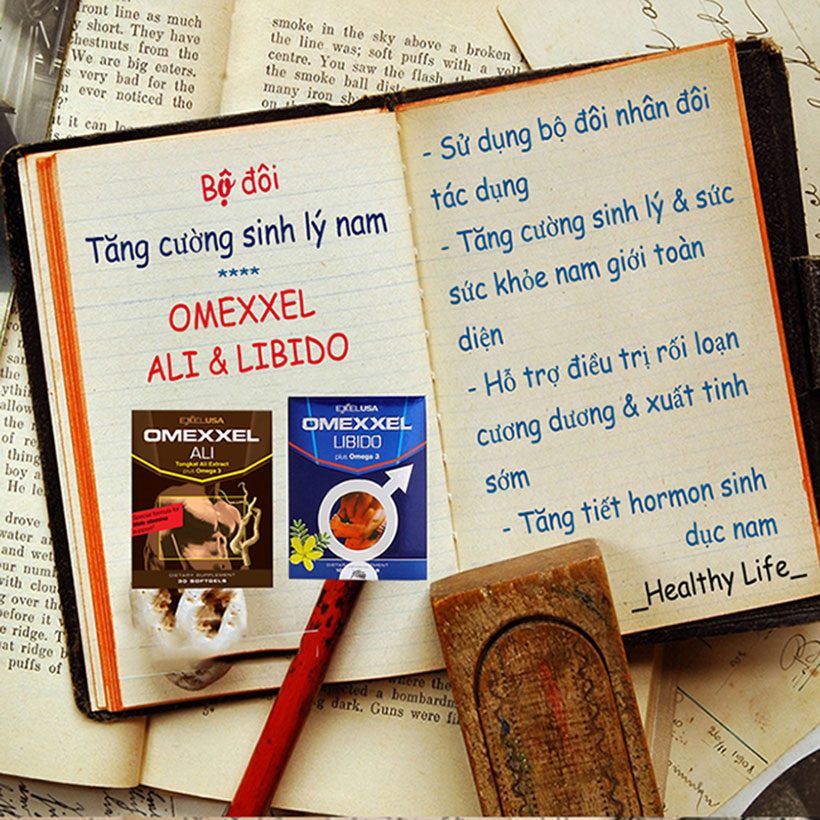 front line as much
y short. They have
hestnuts from the
We are big eaters.
s very bad for the
u ever noticed the
?'
t it can
smoke in the sky above a broken
the line was; soft puffs with a
centre. You saw the flash,
the smoke ball
many iron
on
Bộ đôi
Tăng cường sinh lý nam
****
OMEXXEL
ALI & LIBIDO
EXELUSA
OMEXXEL
ALI
Tongkat Ali Extract
plus Omega 3
Special formula for
Male stamina
DIETARY SUPPLEMENT
30 SOFTGELS
EXELUSA
OMEXXEL
LIBIDO
plus Omega 3
- Sử dụng bộ đôi nhân đôi
tác dụng
- Tăng cường sinh lý & sức
sức khỏe nam giới toàn
diện
- Hỗ trợ điều trị rối loạn
cương dương & xuất tinh
sớm
- Tăng tiết hormon sinh
dục nam
_Healthy Life_
drove
water an
and wet
our num
with clou
g over the
before it
e ridge. T
at ridge b
puffs of
where the
a bombard
dark. Guns were